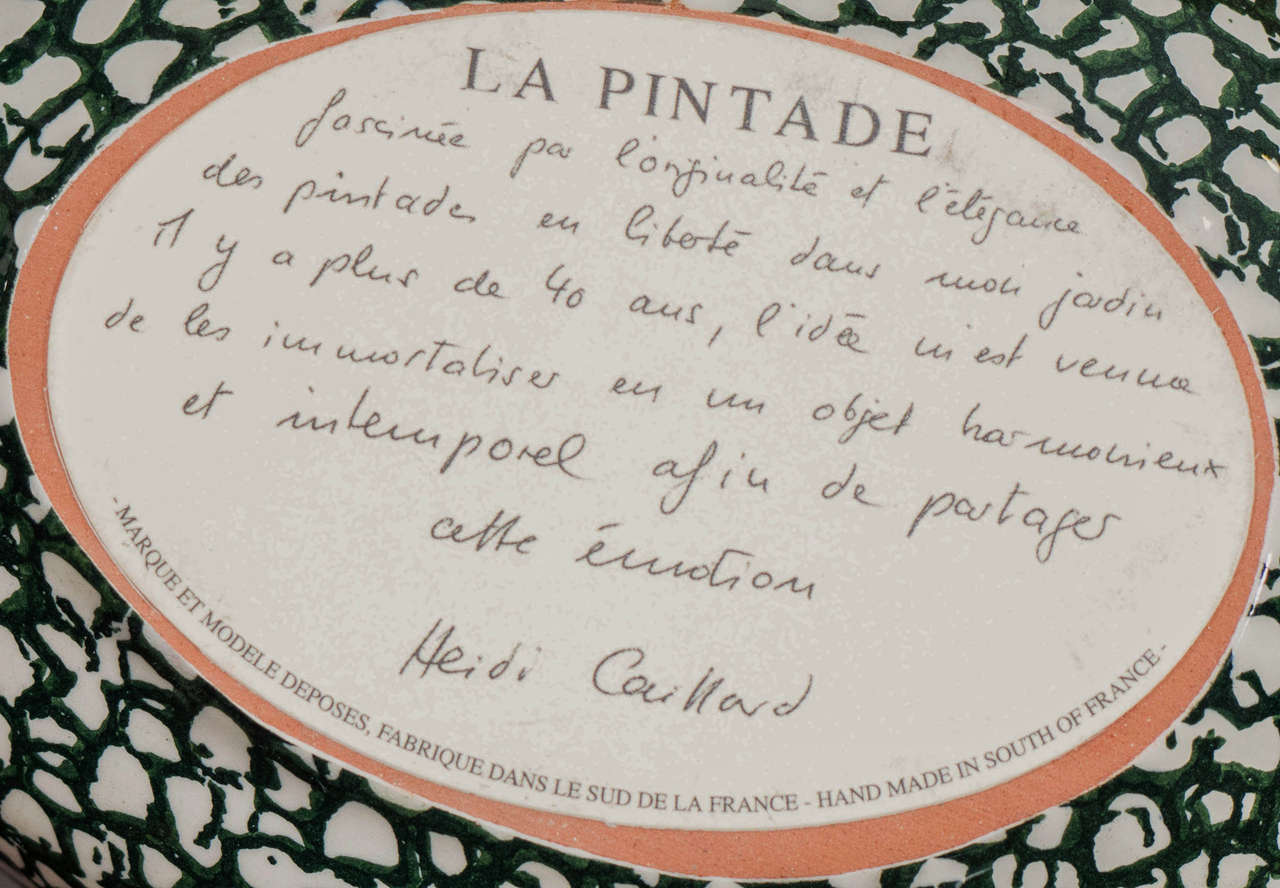 LA PINTADE
fascinée par l'originalité et l'élégance
des pintades en liberté dans mon jardin
il y a plus de 40 ans, l'idée m'est venue
de les immortaliser en un objet harmonieux
et intemporel afin de partager
cette émotion
Heidi Caillard
- MARQUE ET MODELE DEPOSES, FABRIQUE DANS LE SUD DE LA FRANCE - HAND MADE IN SOUTH OF FRANCE -